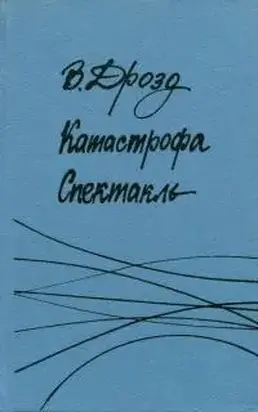 В. Дрозд
Катастрофа
Спектакль